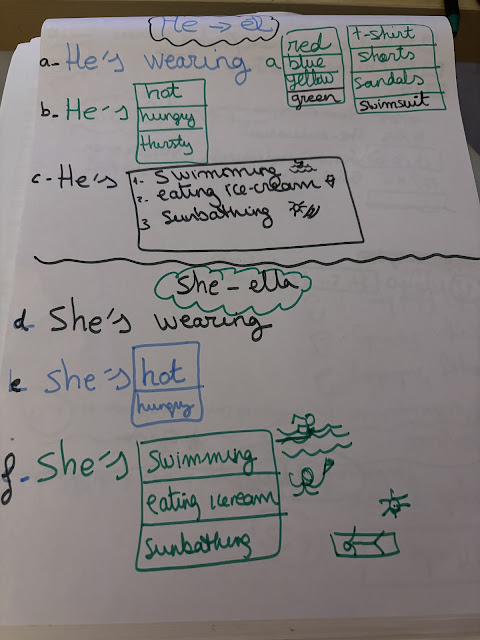 He → él
a- He's wearing a
red
blue
yellow
green
t-shirt
shorts
sandals
swimsuit
b- He's
hot
hungry
thirsty
c- He's
1. swimming
2. eating ice-cream
3 sunbathing
She - ella
d- She's wearing
e- She's
hot
hungry
f- She's
swimming
eating icream
sunbathing